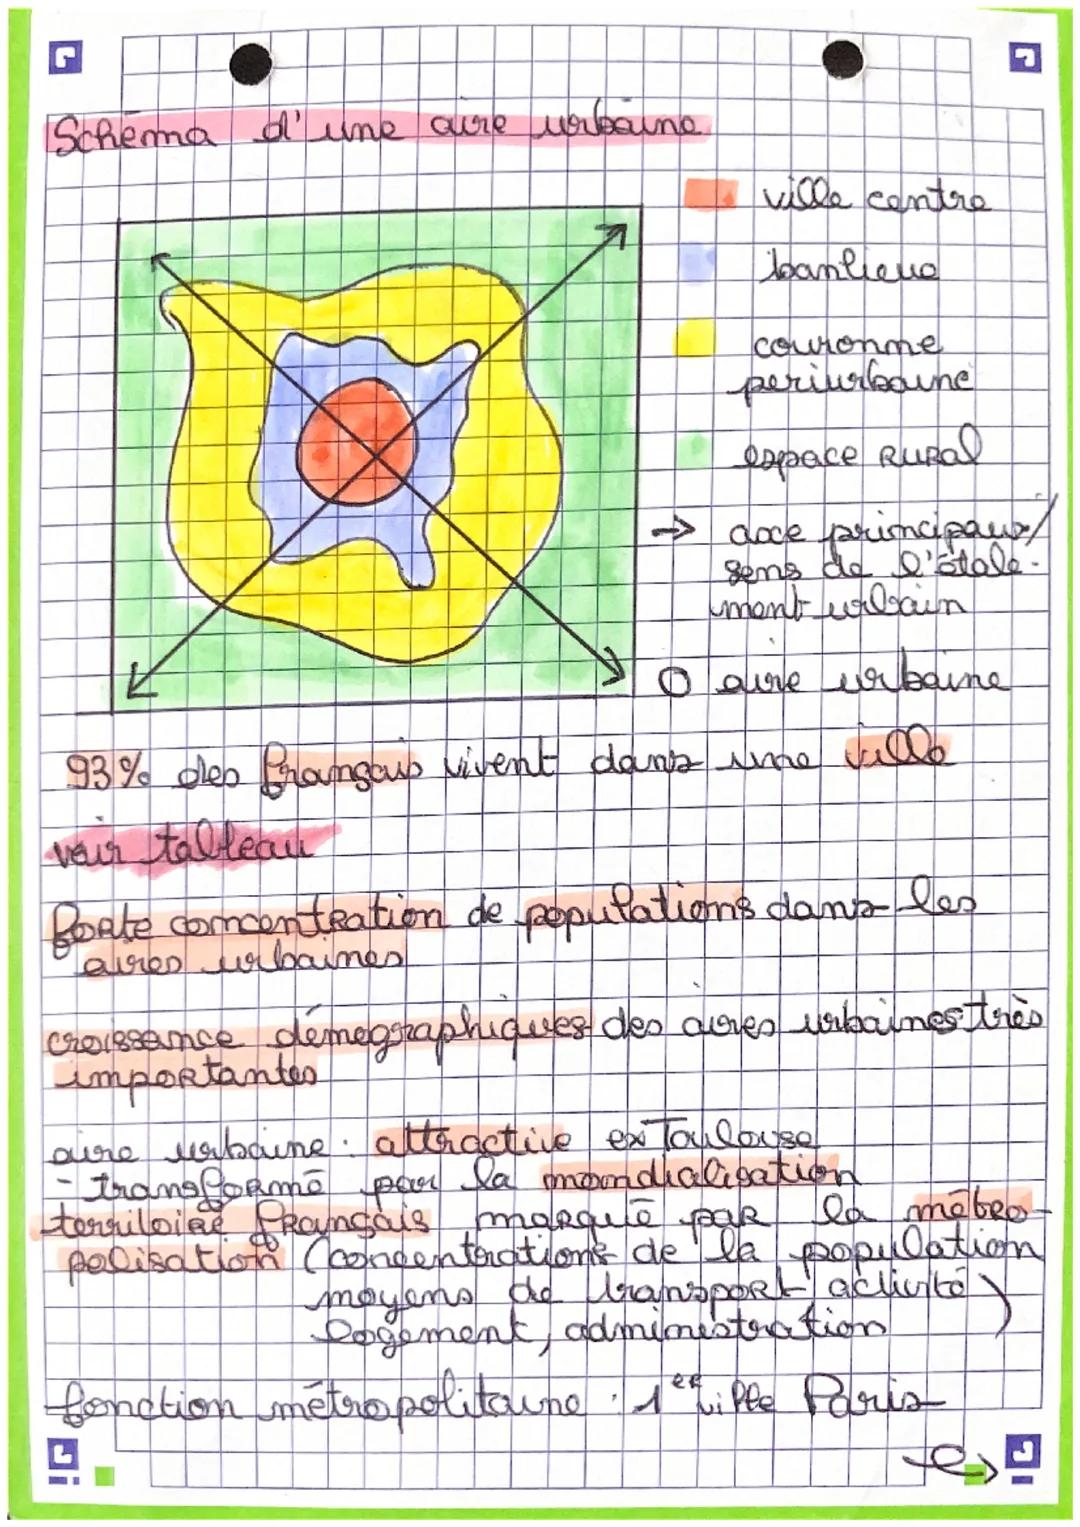 Schéma d'une aire urbaine
ville centre
banlieue
couronne
periurbaine
espace RURal
→ axe principaux/
sens de l'étale-
ment urbain
O aire urbaine
93% des français vivent dans une ville
voir tableau
forte concentration de populations dans les
aires urbaines
croissance démographiques des aires urbaines très
importantes
aire urbaine : attractive ex Toulouse
- transformé par la mondialisation
territoire français marqué par la métro-
polisation (concentrations de la population
moyens de transport activité
logement, administration)
fonction métropolitaine : 1er ville Paris